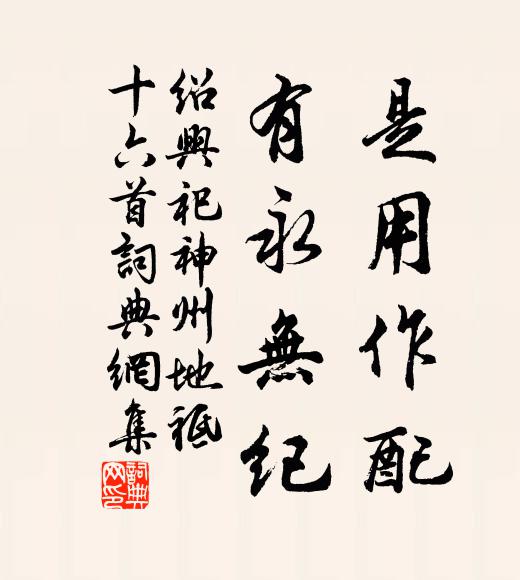 是用作配
有永無紀
紹興祀神州地祇
十六首詞典網集
詞典网印